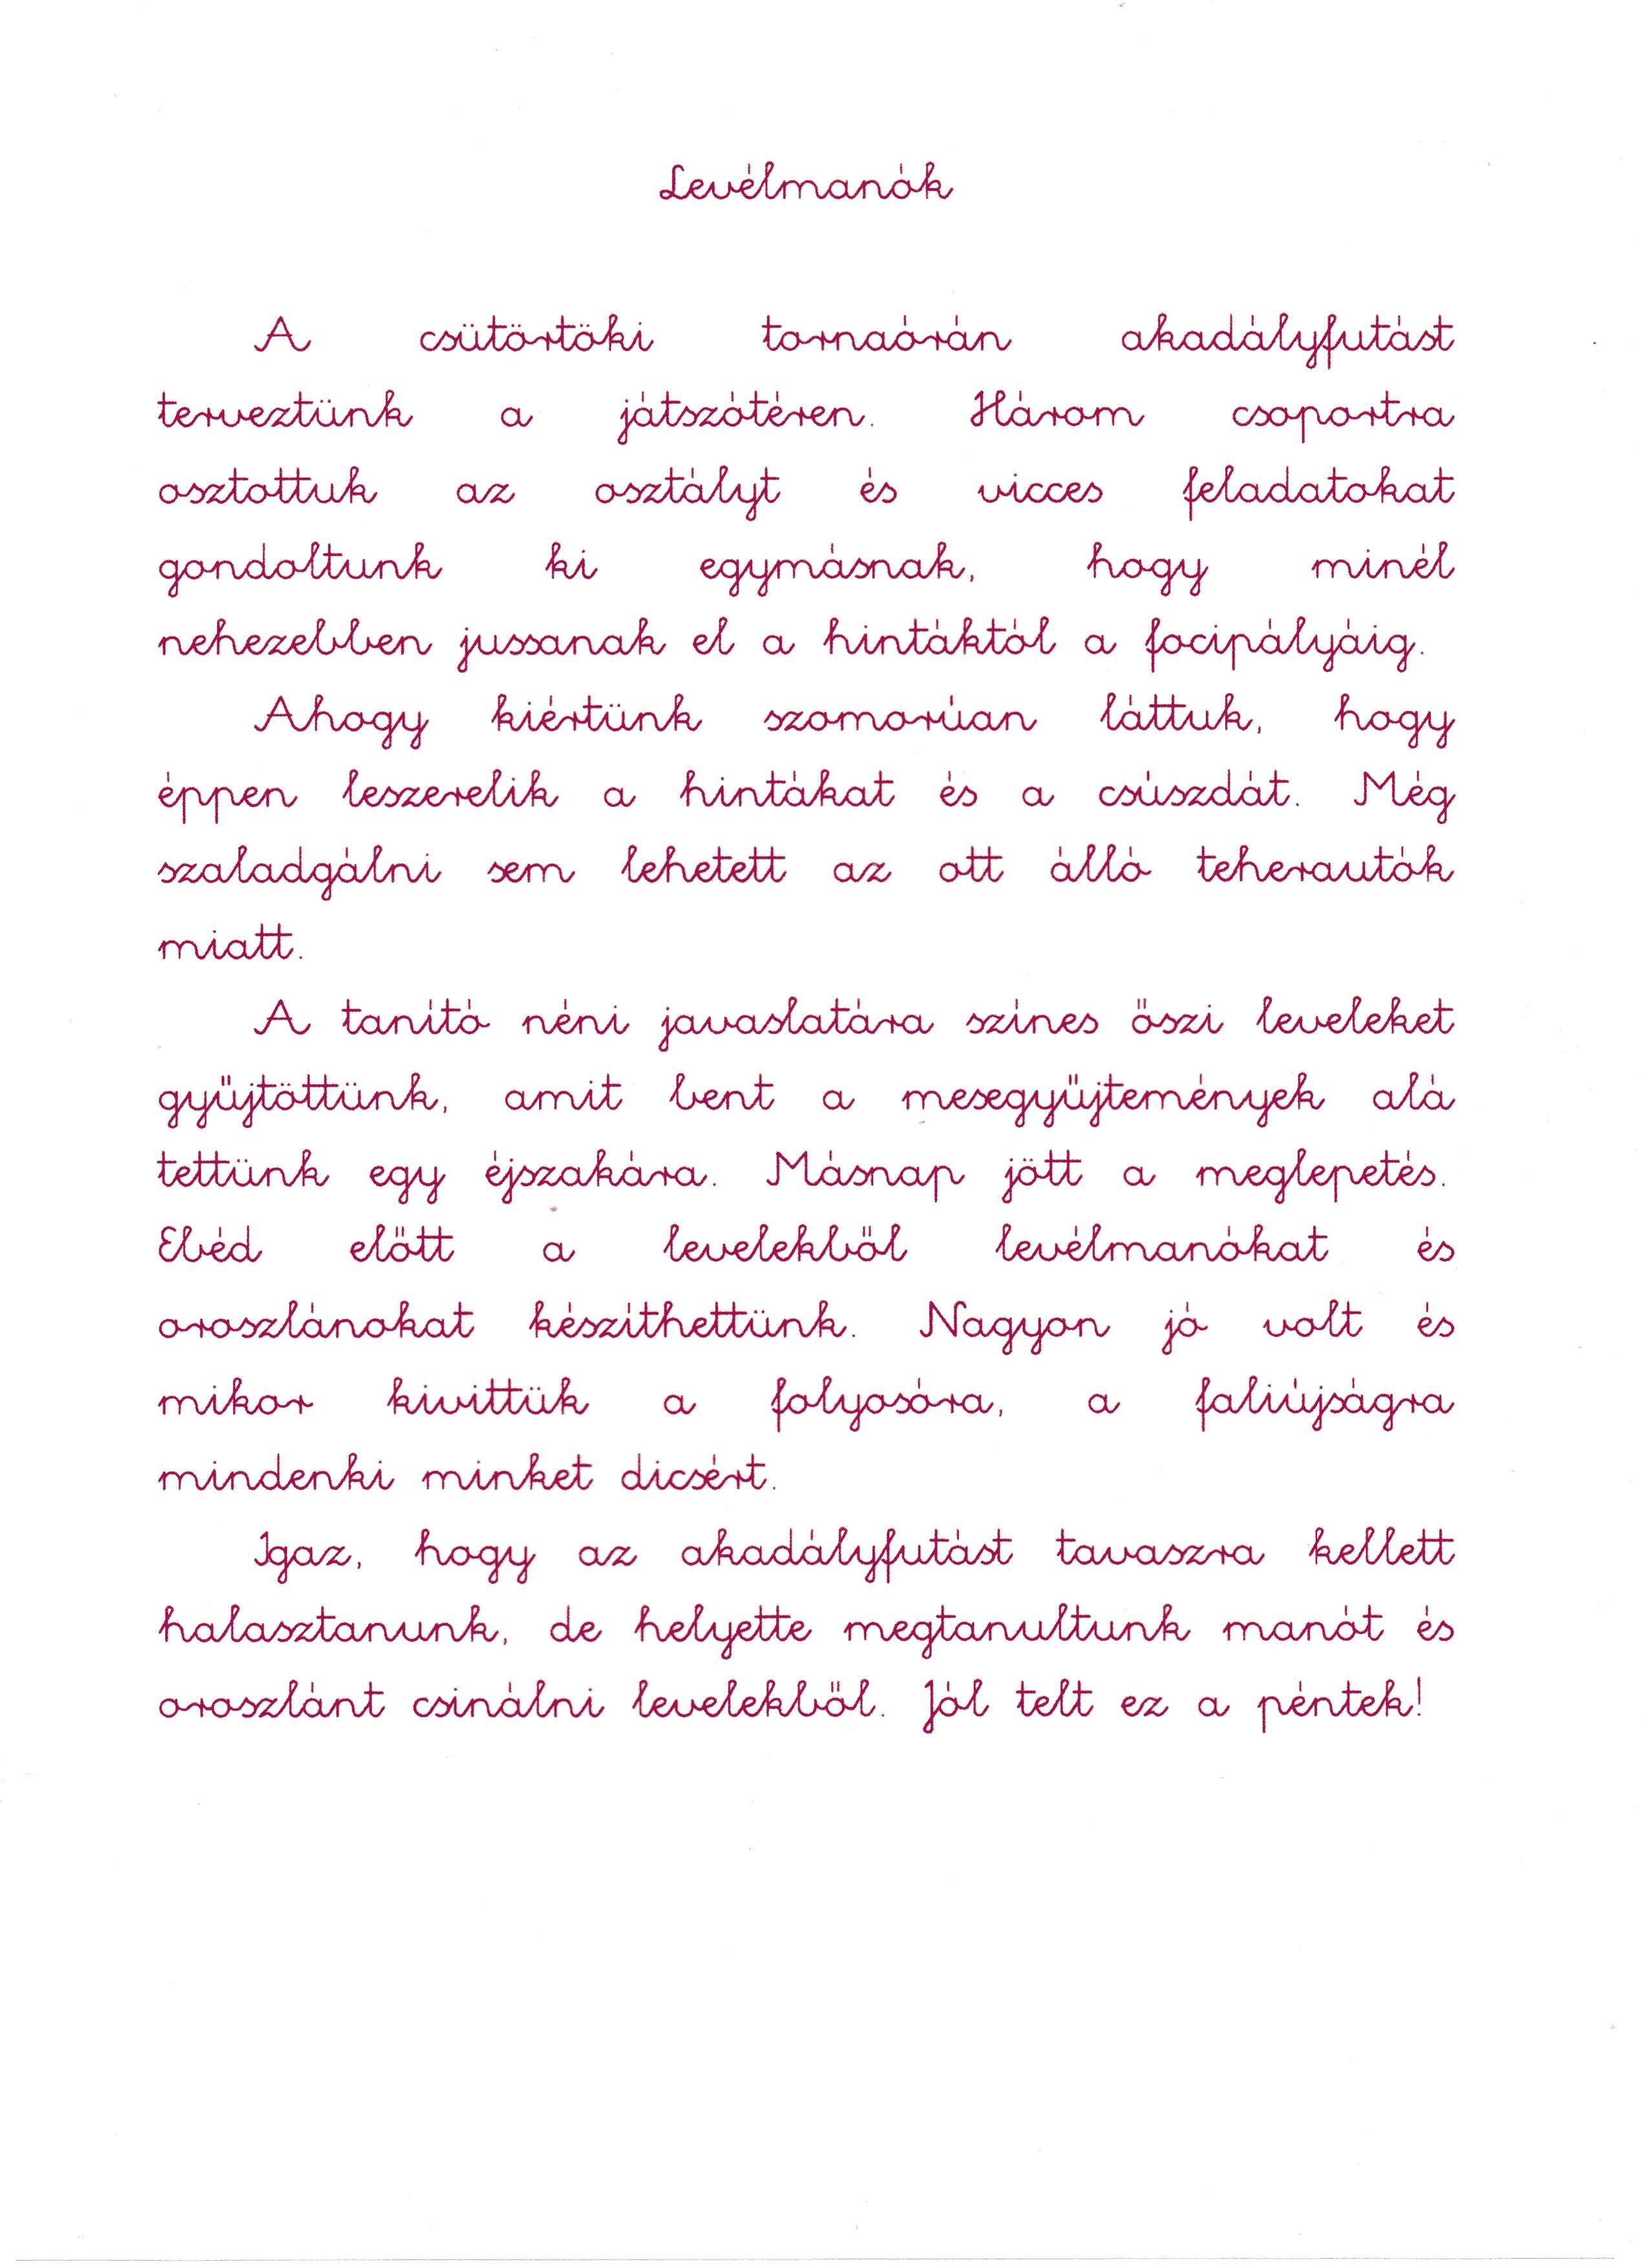 Levélmanók
A csütörtöki tornaórán akadályfutást
terveztünk a játszótéren. Három csoportra
osztottuk az osztályt és vicces feladatokat
gondoltunk ki egymásnak, hogy minél
nehezebben jussanak el a hintáktól a focipályáig.
Ahogy kiértünk szomorúan láttuk, hogy
éppen leszerelik a hintákat és a csúszdát. Még
szaladgálni sem lehetett az ott álló teherautók
miatt.
A tanító néni javaslatára színes őszi leveleket
gyűjtöttünk, amit bent a mesegyűjtemények alá
tettünk egy éjszakára. Másnap jött a meglepetés.
Ebéd előtt a levelekből levélmanókat és
oroszlánokat készíthettünk. Nagyon jó volt és
mikor kivittük a folyosóra, a faliújságra
mindenki minket dicsért.
Igaz, hogy az akadályfutást tavaszra kellett
halasztanunk, de helyette megtanultunk manót és
oroszlánt csinálni levelekből. Jól telt ez a péntek!